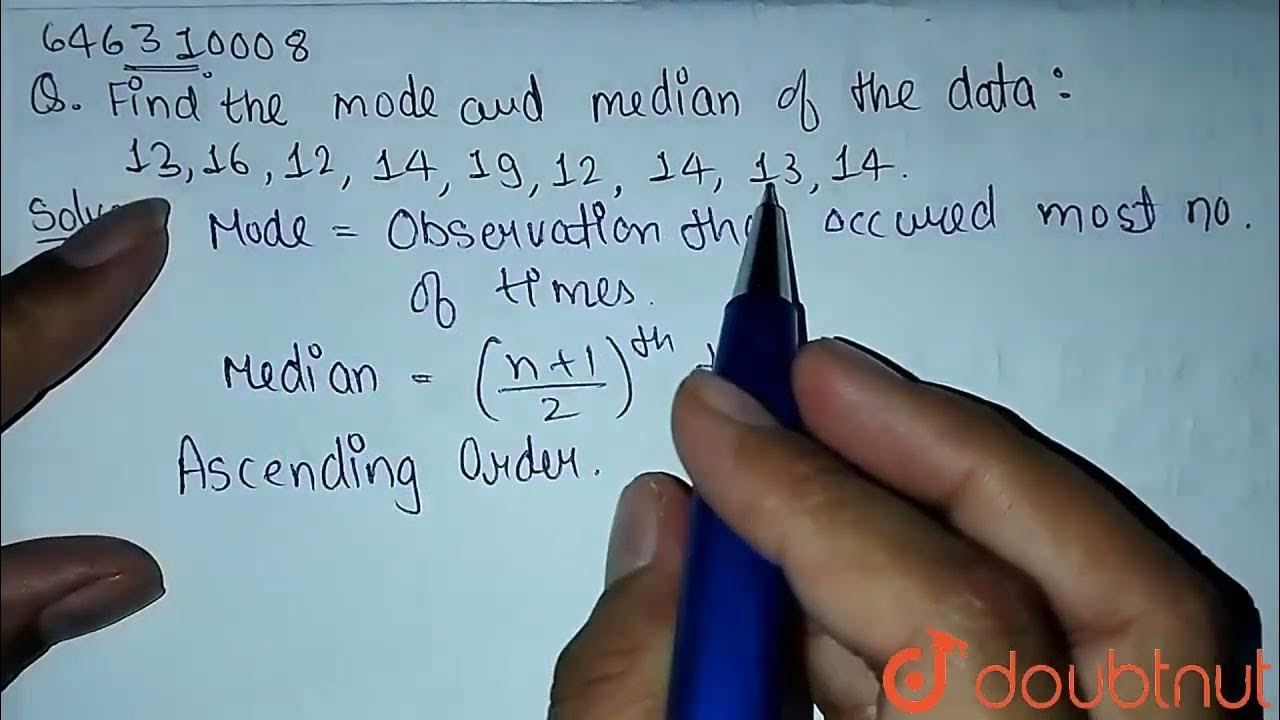 646310008
Q. Find the mode and median of the data :
13, 16, 12, 14, 19, 12, 14, 13, 14.
Mode = Observation occured most no.
of times.
Median = (n+1/2)th
Ascending Order.
doubtnut